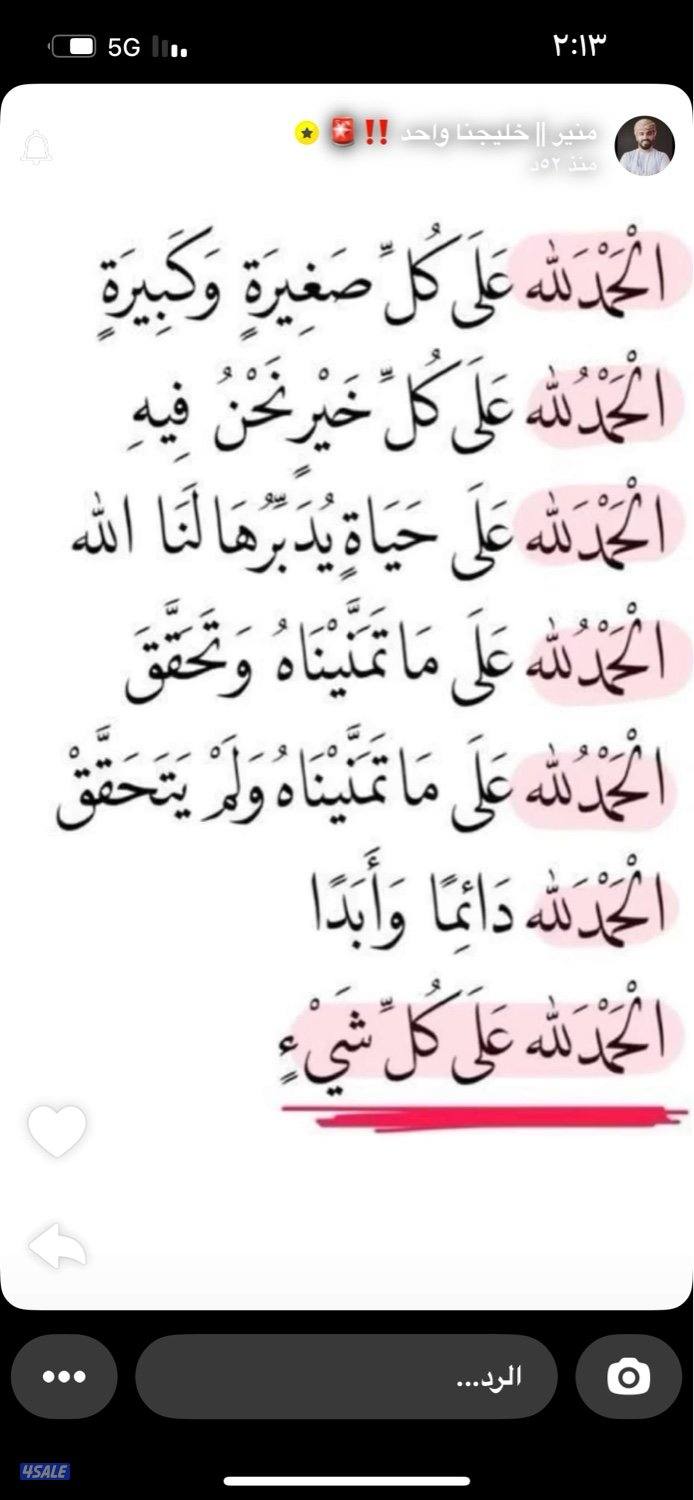 ٢:١٣
5G
منير || خليجنا واحد ‼️🚨
منذ ٥٢د
الْحَمْدُ لله عَلَى كُلِّ صَغِيرَةٍ وَكَبِيرَةٍ
الْحَمْدُ لله عَلَى كُلِّ خَيْرٍ نَحْنُ فِيهِ
الْحَمْدُ لله عَلَى حَيَاةٍ يُدَبِّرُهَا لَنَا الله
الْحَمْدُ لله عَلَى مَا تَمَنَّيْنَاهُ وَتَحَقَّقَ
الْحَمْدُ لله عَلَى مَا تَمَنَّيْنَاهُ وَلَمْ يَتَحَقَّقْ
الْحَمْدُ لله دَائِمًا وَأَبَدًا
الْحَمْدُ لله عَلَى كُلِّ شَيْءٍ
الرد...
4SALE